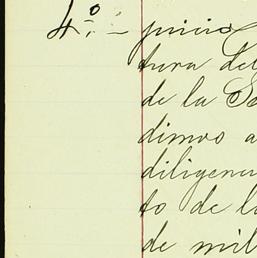 4.º - juicio
tura del
de la Se
dimos a
diligenci
to de lo
de mil